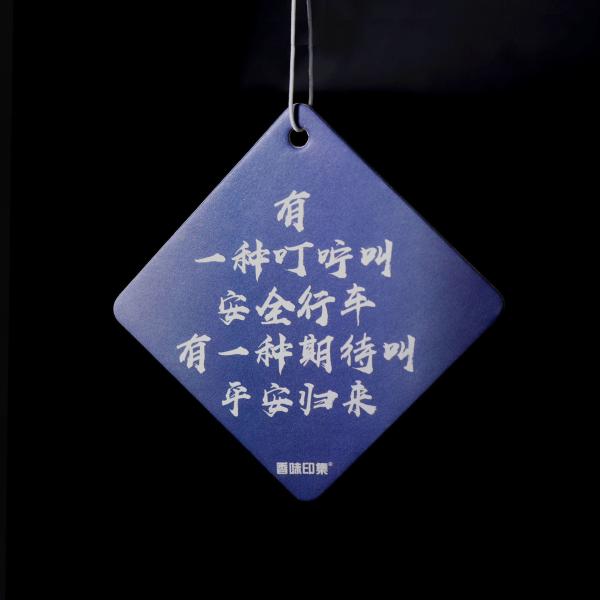 有
一种叮咛叫
安全行车
有一种期待叫
平安归来
香味印集®